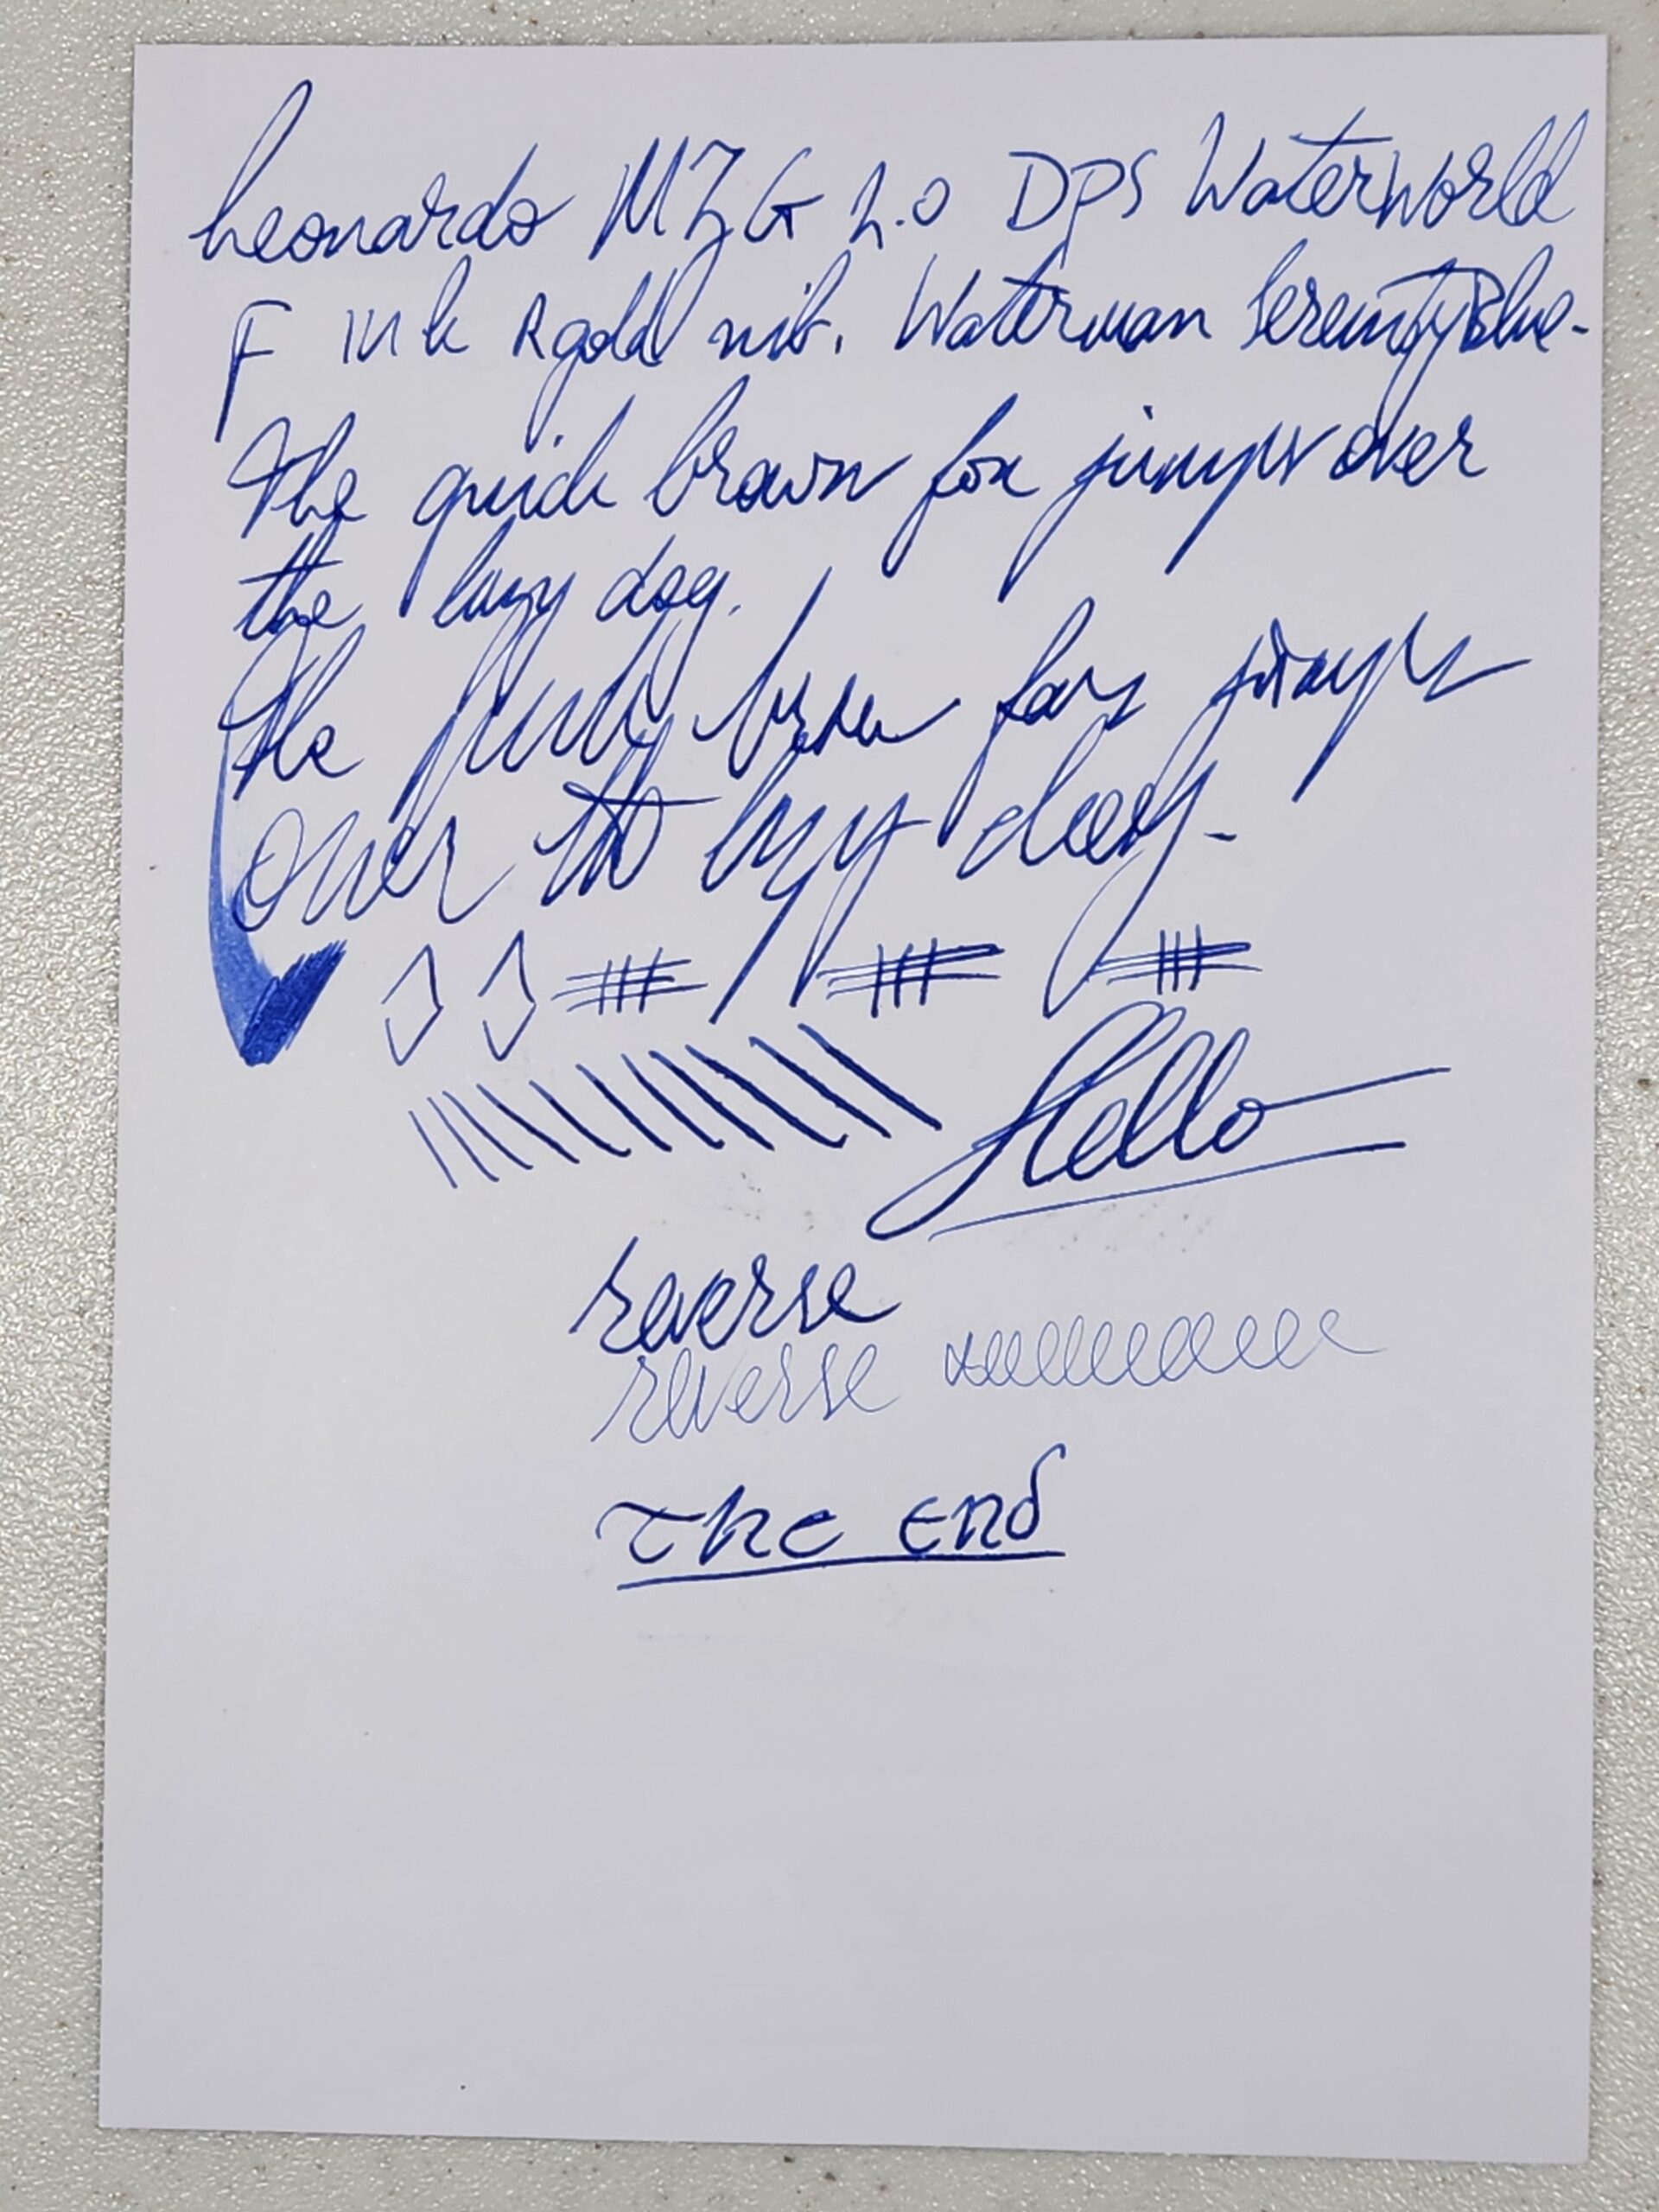 Leonardo MZG 2.0 DPS WaterWorld
F 14k Rgold nib. Waterman Serenity Blue.
The quick brown fox jumps over
the lazy dog.
The brown fox jumps
over the lazy dog.
Hello
reverse
reverse
The End